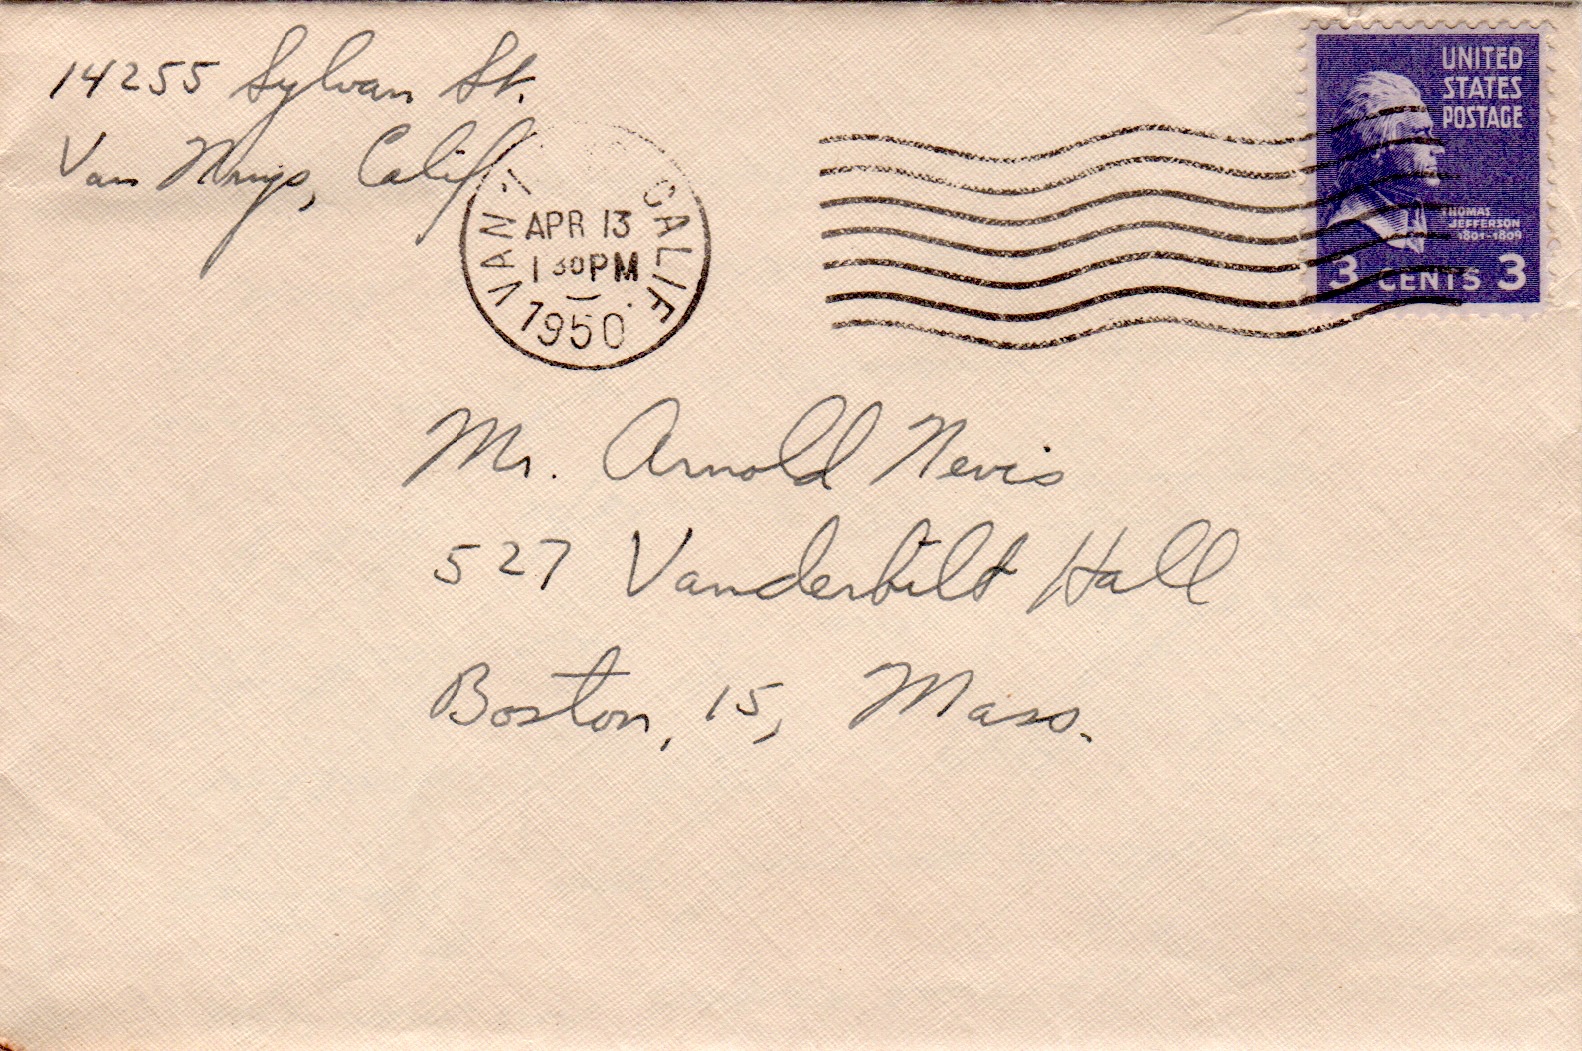 14255 Sylvan St.
Van Nuys, Calif.
VAN CALIF
APR 13
1 30 PM
1950
UNITED
STATES
POSTAGE
THOMAS
JEFFERSON
1801-1809
3 CENTS 3
Mr. Arnold Nevis
527 Vanderbilt Hall
Boston, 15, Mass.